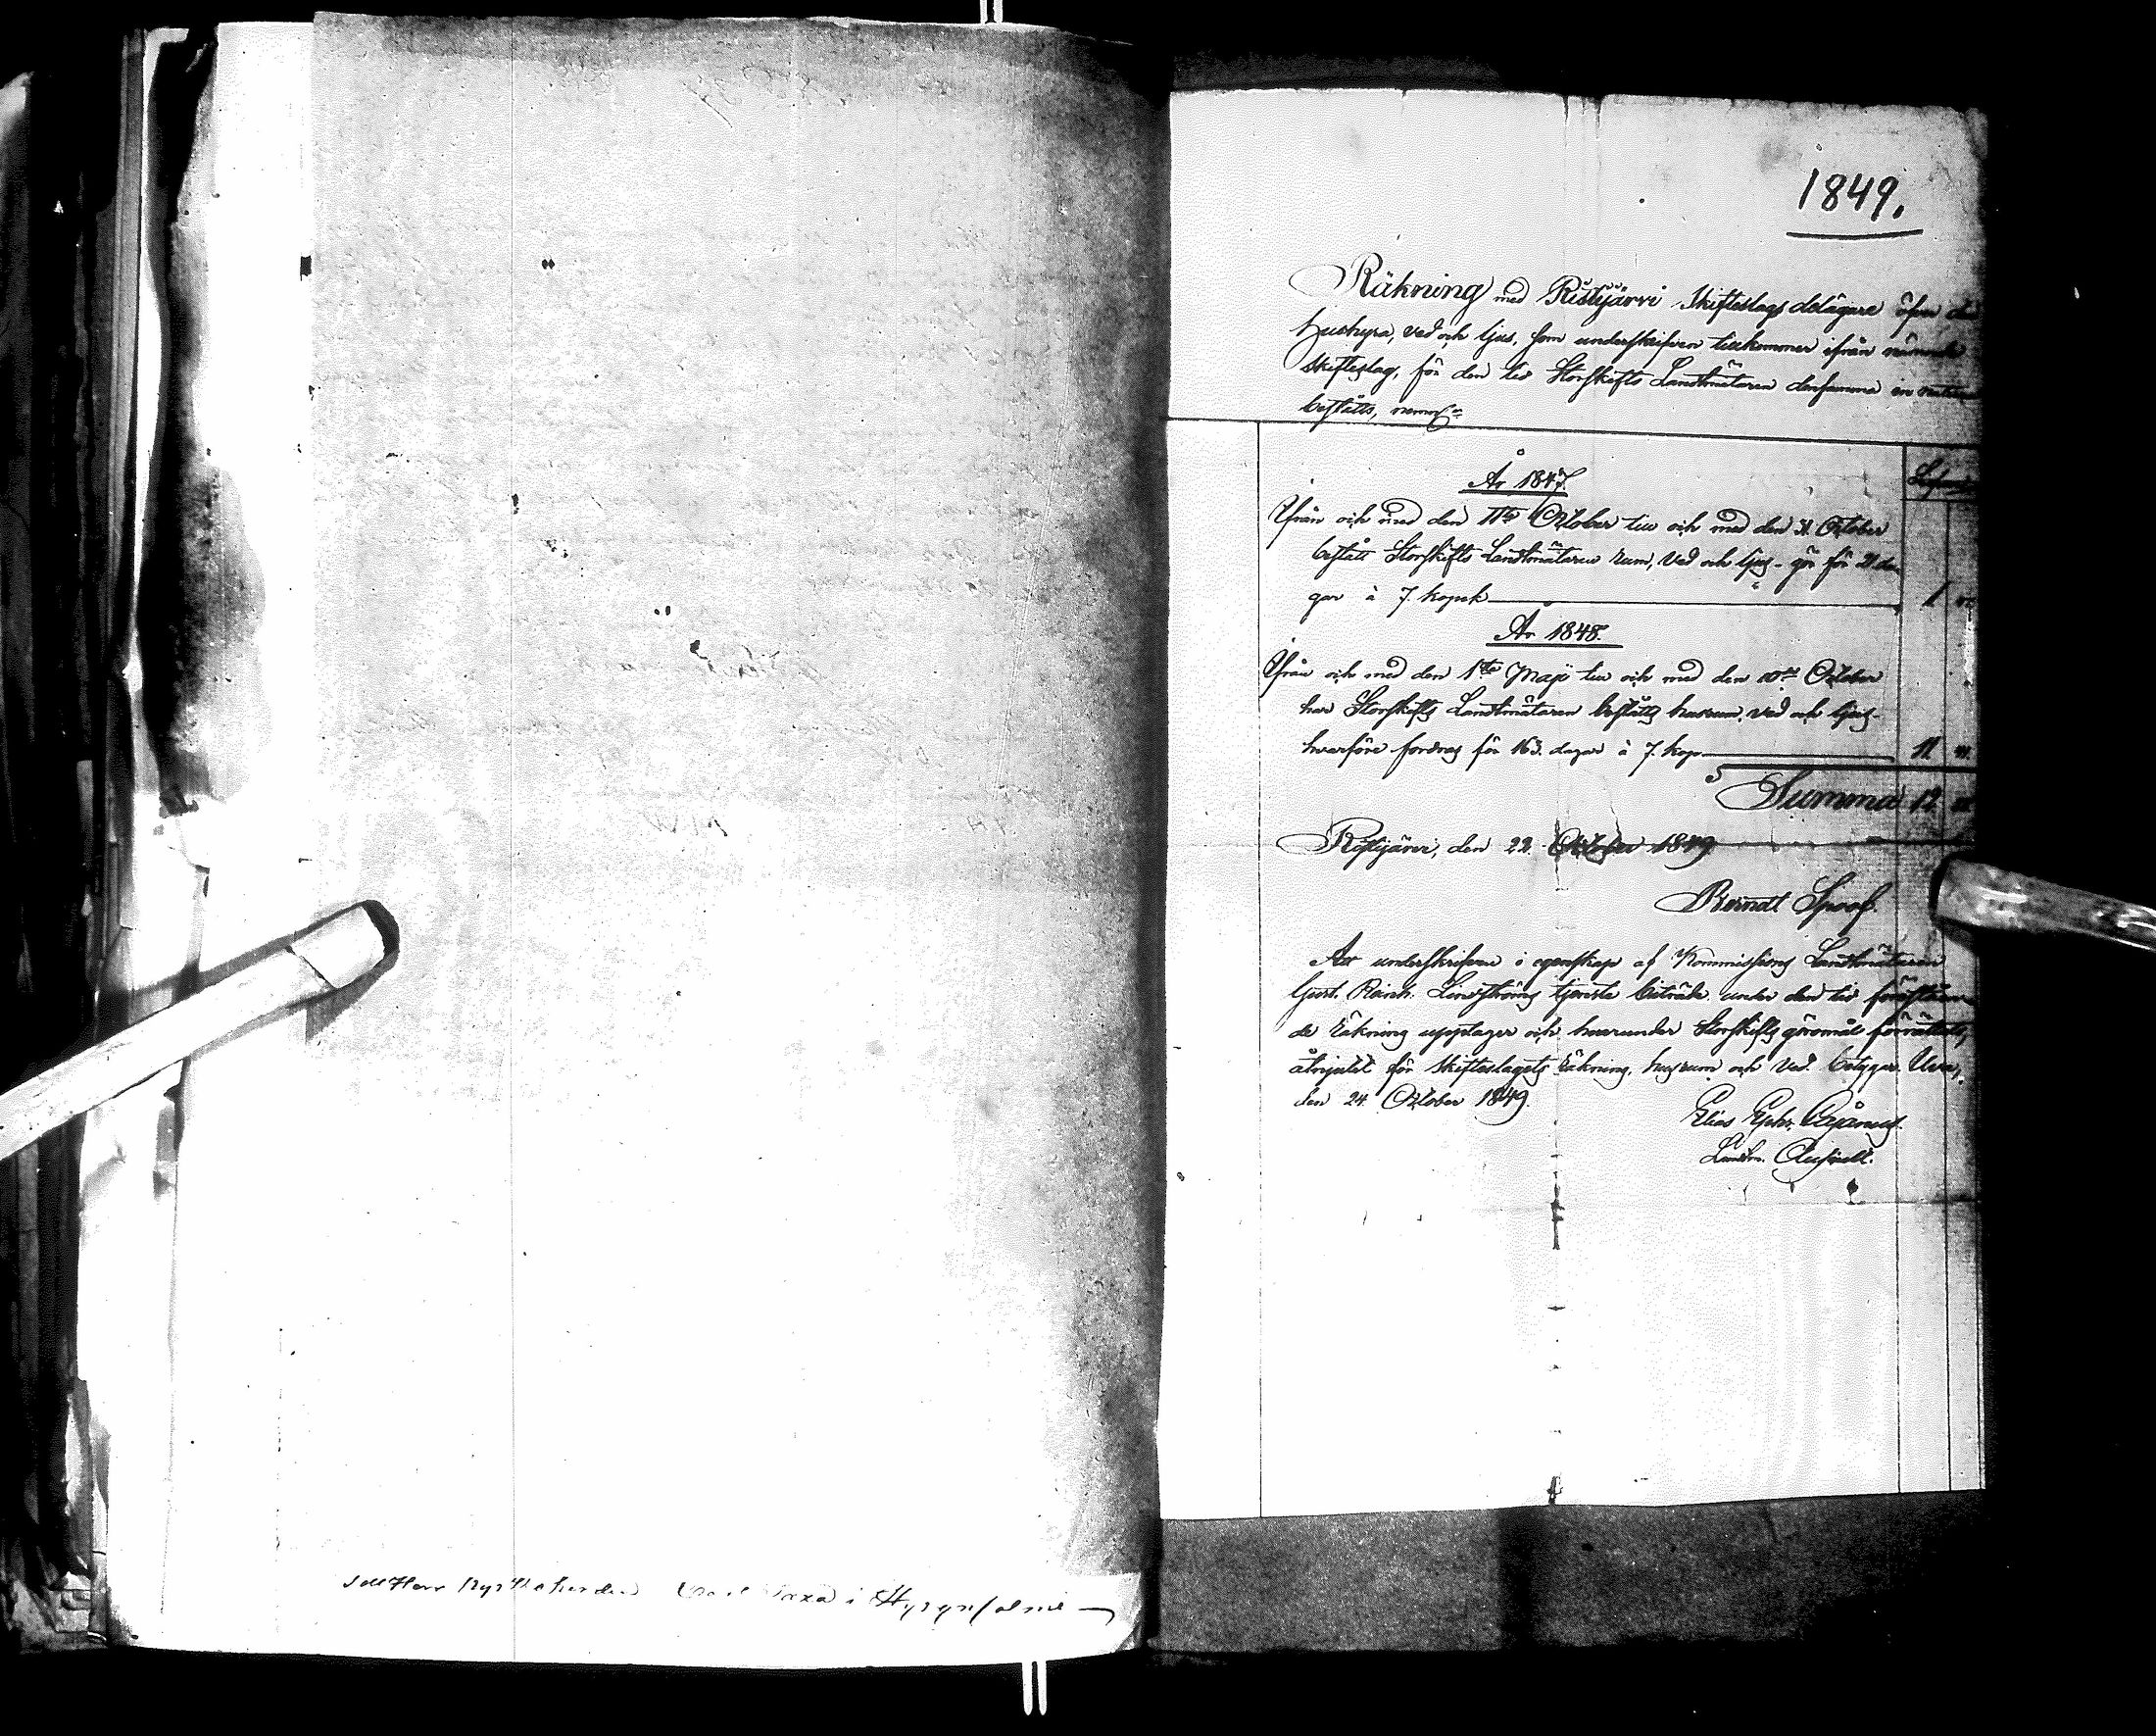 1849.
Räkning med Ristijärvi Skifteslags delägare öfver den
hushyra, ved och ljus, som underskrifven tillkommer ifrån nämnde
Skifteslag, för den tid Storskifts Landtmätaren densamma in natura
bestätts, neml:n
År 1847.
Ifrån och med den 11te October till och med den 31 October
bestått Storskifts Landtmätaren rum, ved och ljus - gör för 21 da
gar à 7. kopek 1
År 1848.
Ifrån och med den 1ste Maji till och med den 10de October
har Storskifts Landtmätaren bestätts husrum, ved och ljus -
hvarföre fordras för 163. dagar à 7. kop. 11
Summa 12
Ristijärvi, den 22. October 1849
Berndt Spoof.
Att underskrifven i egenskap af Kommissions Landtmätaren
Gust. Reinh. Lindströms tjenste biträde under den tid förestäen
de Räkning upptager och hvarunder Storskifts göromål förrättats,
åtnjutit för Skifteslagets räkning, husrum och ved. betygar. Ulea,
den 24. October 1849.
Elias Ephr.
Landtm. Auscult.
Till Herr Kyrkoherden Saxa i Hyrynsalmi